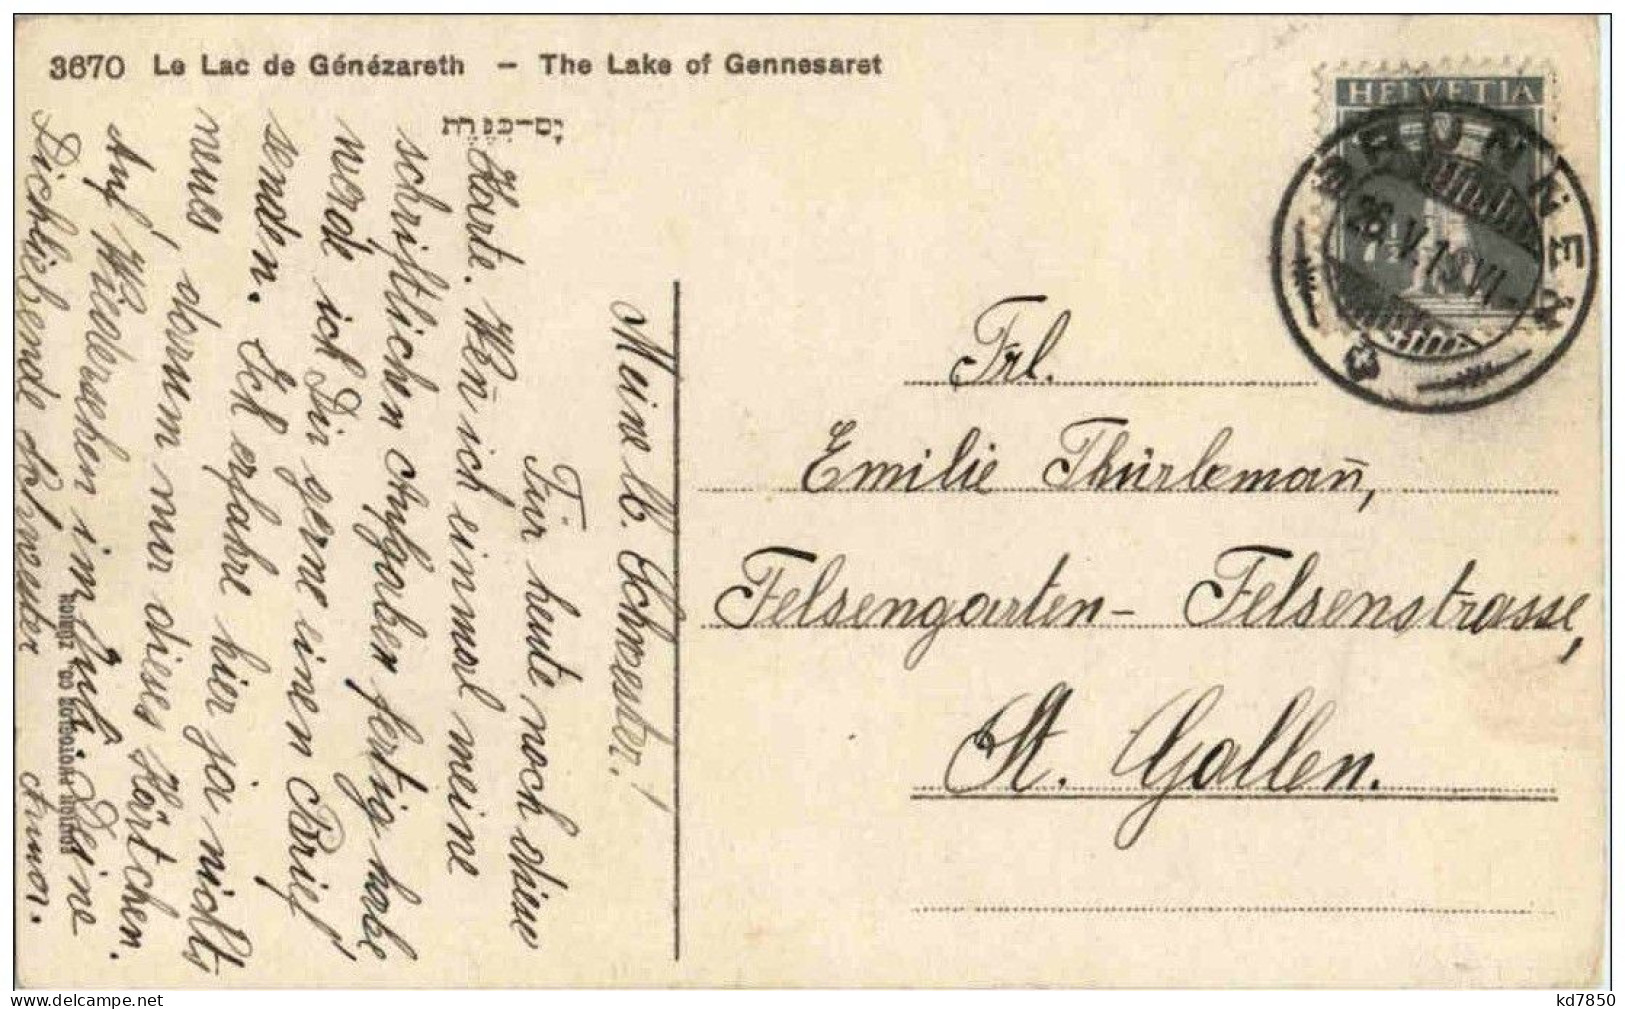 3670 Le Lac de Génézareth – The Lake of Gennesaret
יָם-כִּנֶּרֶת
HELVETIA
7½
BRUNNEN
26.V.19 VI-
Frl.
Emilie Thürlemañ,
Felsengarten- Felsenstrasse,
St. Gallen.
Meine lb. Schwester!
Für heute noch diese
Karte. Weñ ich einmal meine
schriftlichen Aufgaben fertig habe
werde ich Dir gerne einen Brief
senden. Ich erfahre hier ja nichts
neues, darum nur dieses Kärtchen.
Auf Wiedersehen im Juli Deine
Dichliebende Schwester Anna.
delcampe.net
kd7850